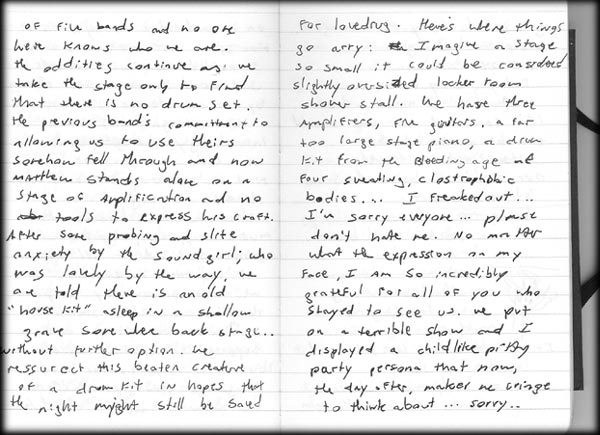 of five bands and no one
here knows who we are.
the oddities continue as we
take the stage only to find
that there is no drum set.
the previous band's committment to
allowing us to use theirs
somehow fell through and now
matthew stands alone on a
stage of amplification and no
tools to express his craft.
After some probing and slite
anxiety by the sound girl; who
was lovely by the way, we
are told there is an old
"house kit" asleep in a shallow
grave somewhere back stage..
without further option. we
ressurect this beaten creature
of a drum kit in hopes that
the night might still be saved
for lovedrug. Here's where things
go arry: Imagine a stage
so small it could be considered
slightly oversized locker room
shower stall. We have three
Amplifiers, five guitars, a far
too large stage piano, a drum
kit from the Bleeding age and
four sweating, clostrophobic
bodies... I freaked out...
I'm sorry everyone... please
don't hate me. No matter
what the expression on my
face, I am so incredibly
grateful for all of you who
stayed to see us. we put
on a terrible show and I
displayed a childlike pitty
party persona that now,
the day after, makes me cringe
to think about... sorry..